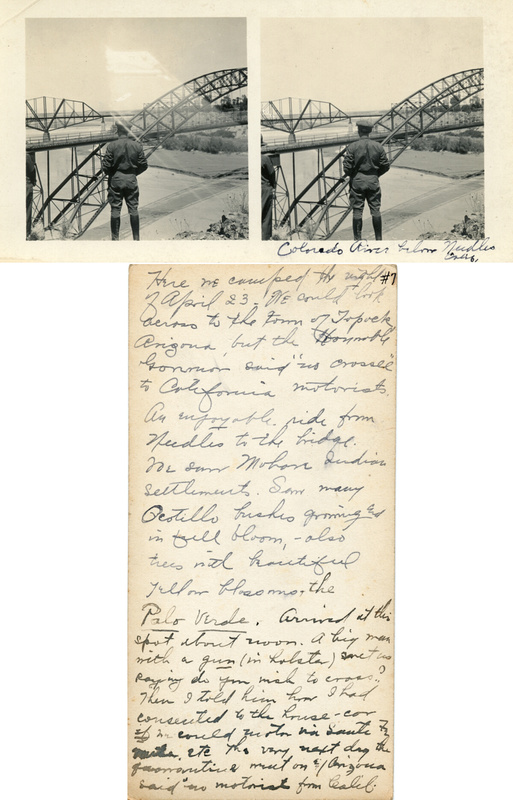 Colorado River below Needles
Calif.
#7
Here we camped the night
of April 23 - We could look
across to the town of Topock
Arizona, but the Honorable
Governor said "no crossee"
to California motorists.
An enjoyable ride from
Needles to the bridge.
We saw Mohave Indian
settlements. Saw many
Ocotillo bushes growing and
in full bloom, - also
trees with beautiful
yellow blossoms, the
Palo Verde. Arrived at this
spot about noon. A big man
with a gun (in holster) met us
saying do you wish to cross?
Then I told him how I had
consented to the house-car
if we could motor via Santa Fe
etc the very next day the
quarantine went on & Arizona
said "no motorist from Calif.